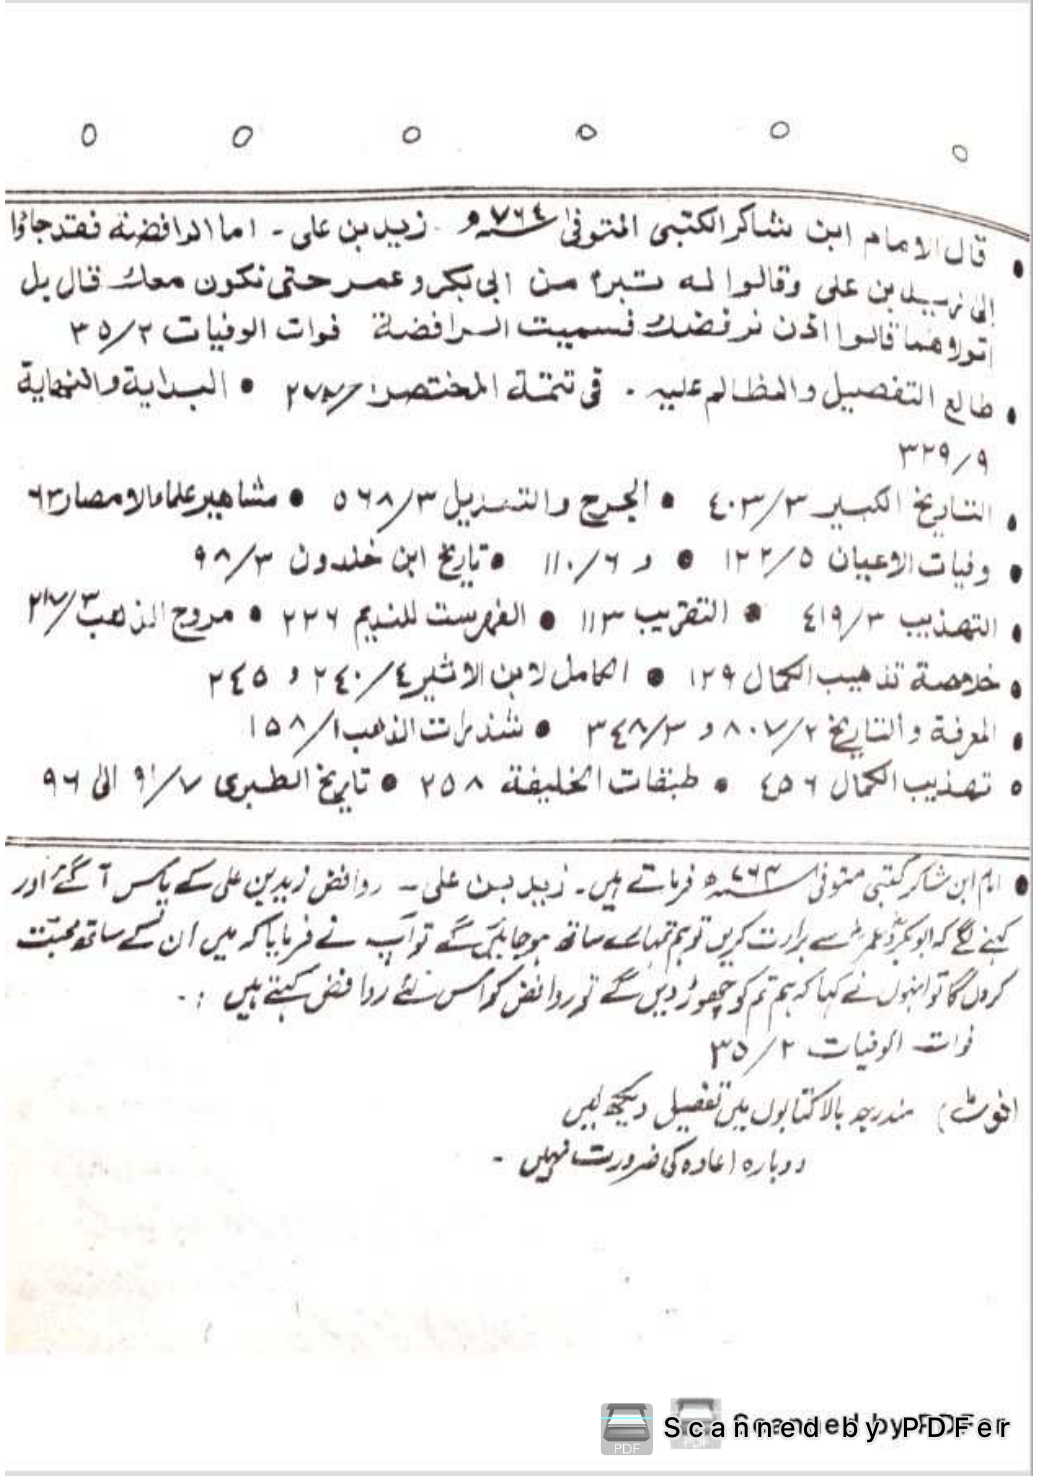 • قال الامام ابن شاكر الكتبى المتوفىٰ ٧٦٤ ه‍ - زيد بن على - اما الرافضة فقد جاؤا
الى زيد بن على وقالوا له تبرء من ابى بكر و عمر حتى نكون معك قال بل
اتولاهما قالوا اذن نرفضك فسميت الرافضة فوات الوفيات ٣٥/٢
• طالع التفصيل والمظالم عليه . فى تتمة المختصر • البداية والنهاية
٣٢٩/٩
• التاريخ الكبير ٤٠٣/٣ • الجرح والتعديل ٥٦٨/٣ • مشاهير علماء الامصار ٦٣
• وفيات الاعيان ١٢٢/٥ • و ١١٠/٦ • تاريخ ابن خلدون ٩٨/٣
• التهذيب ٤١٩/٣ • التقريب ١١٣ • الفهرست للنديم ٢٢٦ • مروج الذهب
• خلاصة تذهيب الكمال ١٢٩ • الكامل لابن الاثير ٢٤٠/٤ و ٢٤٥
• المعرفة والتاريخ ٨٠٧/٢ و ٣٤٨/٣ • شذرات الذهب ١٥٨/١
• تهذيب الكمال ٤٥٦ • طبقات الخليفة ٢٥٨ • تاريخ الطبرى ٩١/٧ الى ٩٦
• امام ابن شاکر کتبی متوفیٰ ۷۶۴ھ فرماتے ہیں - زید بن علی - روافض زید بن علی کے پاس آ گئے اور
کہنے لگے کہ ابوبکرؓ و عمرؓ سے برارت کریں تو ہم تمہارے ساتھ ہو جائیں گے تو آپ نے فرمایا کہ میں ان کے ساتھ محبت
کروں گا تو انہوں نے کہا کہ ہم تم کو چھوڑ دیں گے تو روافض کو اس لئے روافض کہتے ہیں :-
فوات الوفیات ۳۵/۲
(نوٹ) مندرجہ بالا کتابوں میں تفصیل دیکھ لیں
دوبارہ اعادہ کی ضرورت نہیں -
Scanned by PDFer